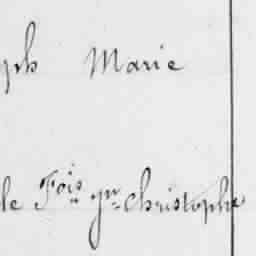 ph Marie
le Fois gn Christophe